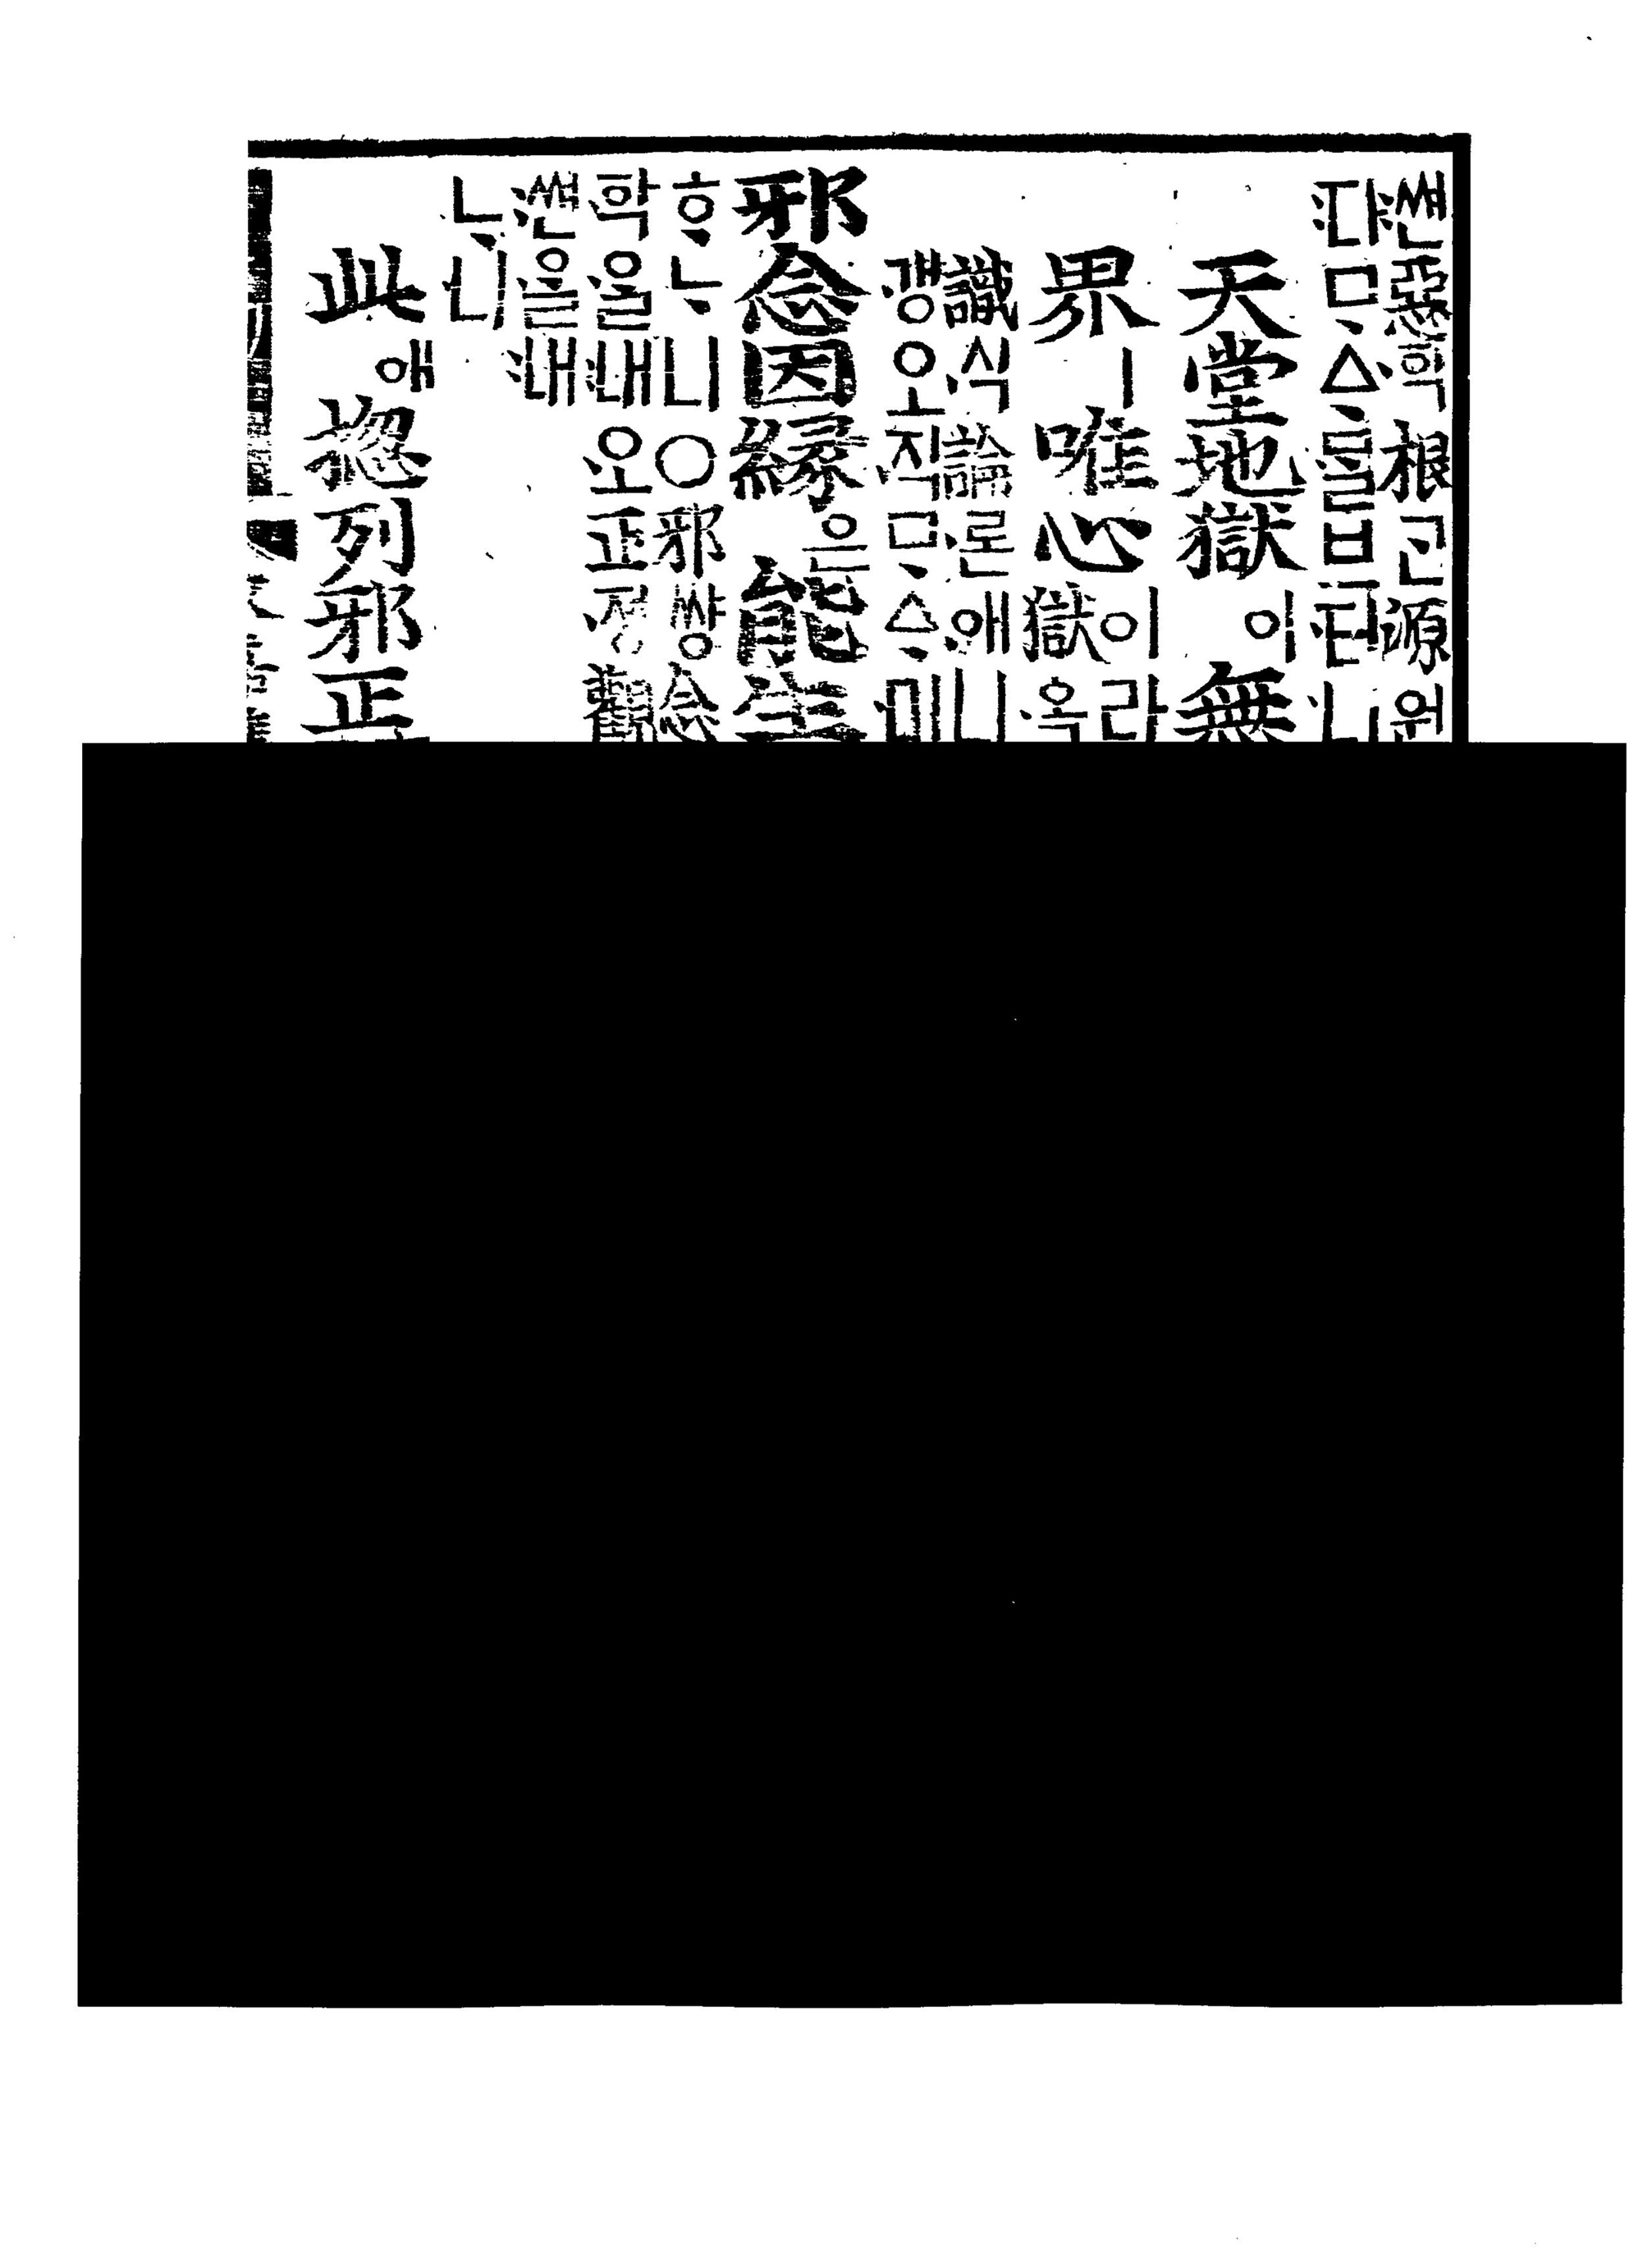 쎤惡학根ᄀᆞᆫ源원
다ᄆᆞᅀᆞᄆᆞᆯ브터니
天堂地獄이無
界ㅣ唯心이라
獄옥
識식論론애니
갱오직ᄆᆞᅀᆞ미
邪念因緣은能生
ᄒᆞᄂᆞ니○邪썅念
학을내오正졍觀
쎤을내
ᄂᆞ니
此애揔列邪正